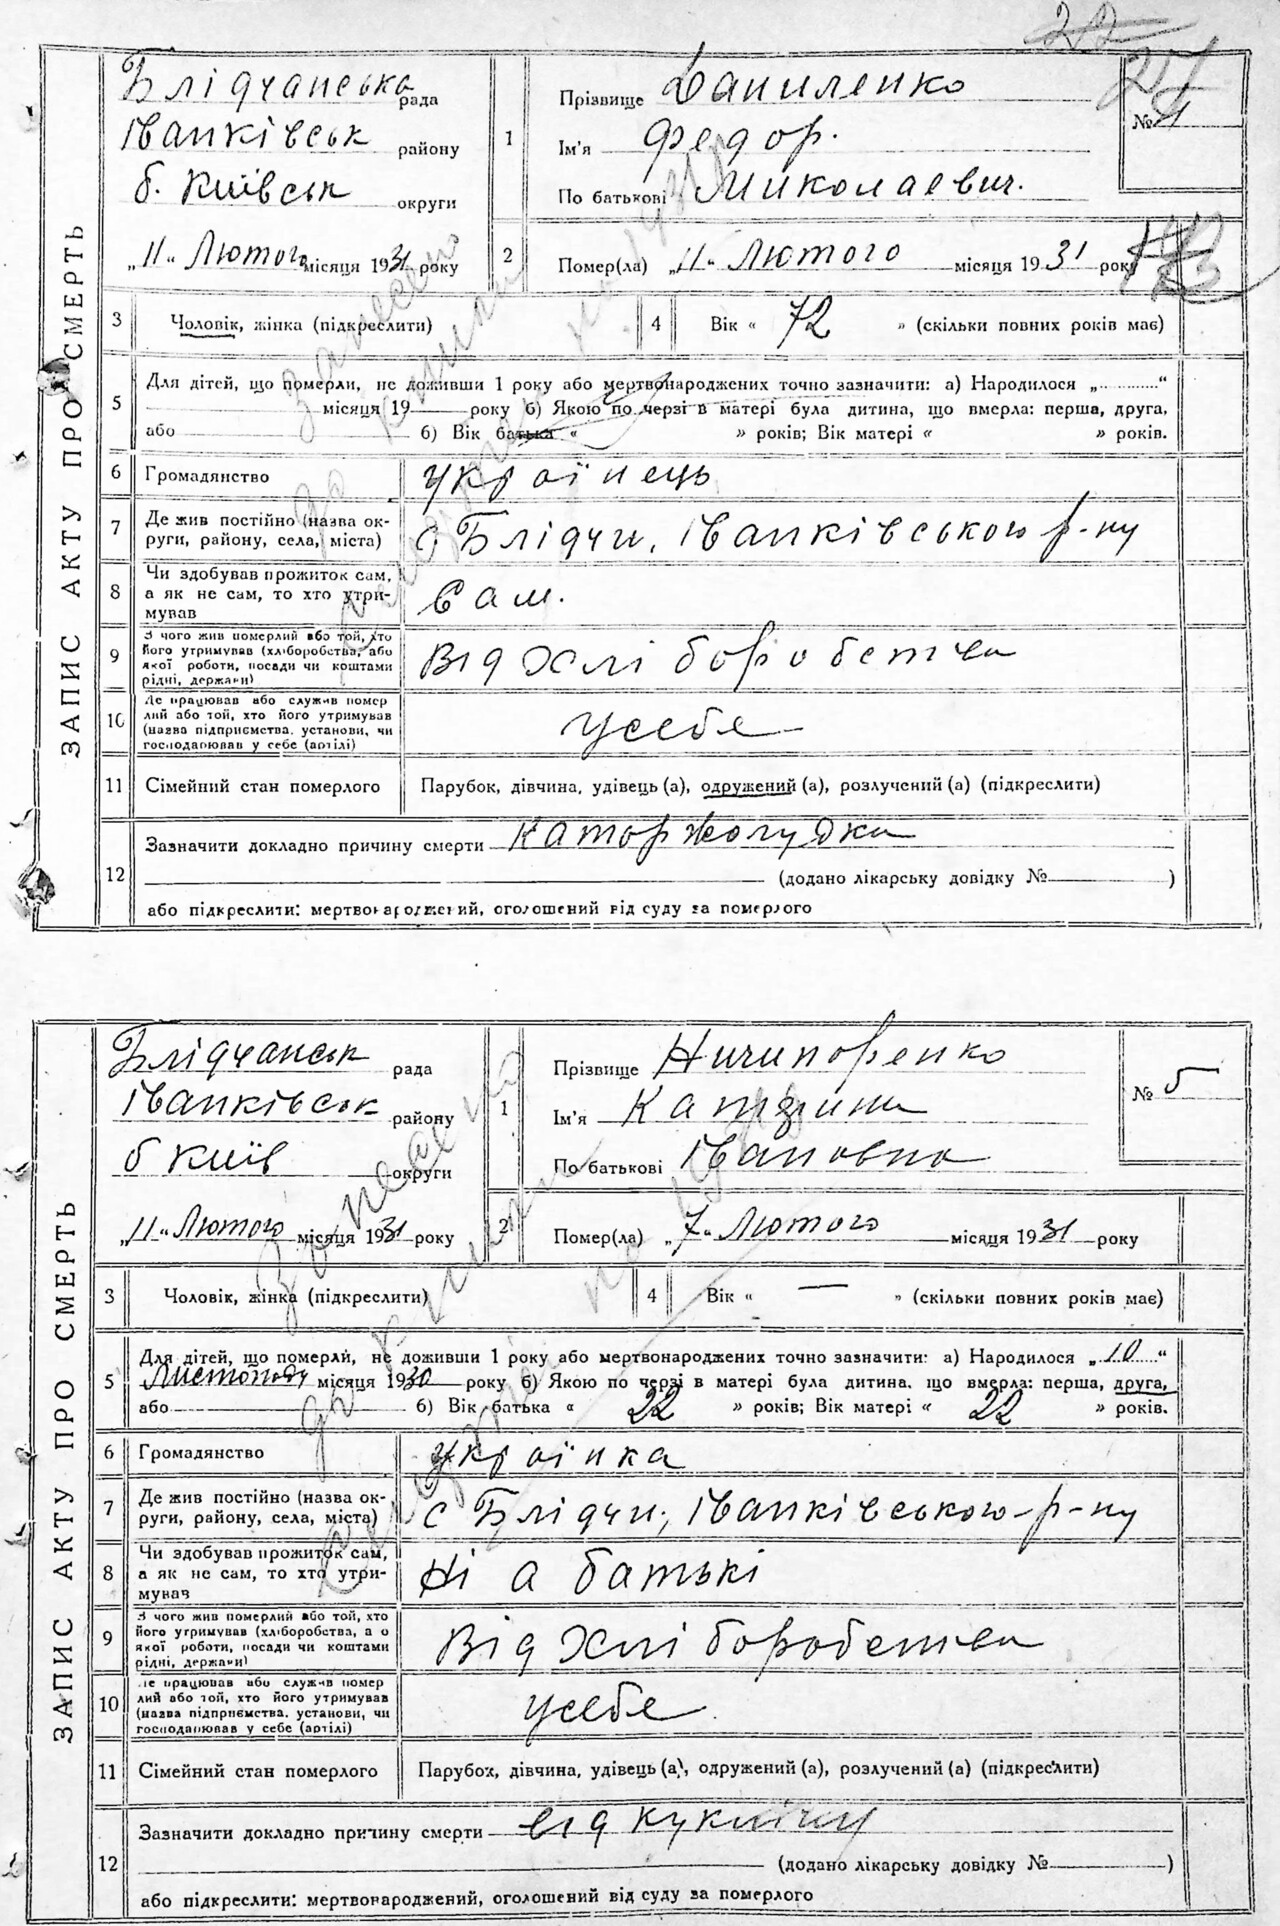 27
ЗАПИС АКТУ ПРО СМЕРТЬ
Блідчанська рада
Іванківськ району
б. Київськ округи
„11“ Лютого місяця 1931 року
1
Прізвище Даниленко
Ім'я Федор.
По батькові Миколаевич.
№ 4
2 Помер(ла) „11“ Лютого місяця 1931 року
3 Чоловік, жінка (підкреслити) 4 Вік « 72 » (скільки повних років має)
5 Для дітей, що померли, не доживши 1 року або мертвонароджених точно зазначити: а) Народилося „............“
місяця 19 року б) Якою по черзі в матері була дитина, що вмерла: перша, друга,
або б) Вік батька « » років; Вік матері « » років.
6 Громадянство Українець
7 Де жив постійно (назва ок-
руги, району, села, міста) с Блідчи, Іванківською р-ну
8 Чи здобував прожиток сам,
а як не сам, то хто утри-
мував Сам.
9 З чого жив померлий або той, хто
його утримував (хліборобства, або
якої роботи, посади чи коштами
рідні, держави) Від Хліборобства
10 Де працював або служив помер
лий або той, хто його утримував
(назва підприємства, установи, чи
господарював у себе (артілі) усебе
11 Сімейний стан померлого Парубок, дівчина, удівець (а), одружений (а), розлучений (а) (підкреслити)
12 Зазначити докладно причину смерти Каторжолудка
(додано лікарську довідку № )
або підкреслити: мертвонароджений, оголошений від суду за померлого
ЗАПИС АКТУ ПРО СМЕРТЬ
Блідчанськ рада
Іванківськ району
б Київ округи
„11“ Лютого місяця 1931 року
1
Прізвище Ничипоренко
Ім'я Катерина
По батькові Івановна
№ 5
2 Помер(ла) „7“ Лютого місяця 1931 року
3 Чоловік, жінка (підкреслити) 4 Вік « — » (скільки повних років має)
5 Для дітей, що померли, не доживши 1 року або мертвонароджених точно зазначити: а) Народилося „10“
Листопаду місяця 1930 року б) Якою по черзі в матері була дитина, що вмерла: перша, друга,
або б) Вік батька « 22 » років; Вік матері « 22 » років.
6 Громадянство Українка
7 Де жив постійно (назва ок-
руги, району, села, міста) с Блідчи, Іванківською р-ну
8 Чи здобував прожиток сам,
а як не сам, то хто утри-
мував Ні а батькі
9 З чого жив померлий або той, хто
його утримував (хліборобства, а о
якої роботи, посади чи коштами
рідні, держави) Від Хліборобства
10 Де працював або служив помер
лий або той, хто його утримував
(назва підприємства, установи, чи
господарював у себе (артілі) усебе.
11 Сімейний стан померлого Парубок, дівчина, удівець (а), одружений (а), розлучений (а) (підкреслити)
12 Зазначити докладно причину смерти від куклюшу
(додано лікарську довідку № )
або підкреслити: мертвонароджений, оголошений від суду за померлого